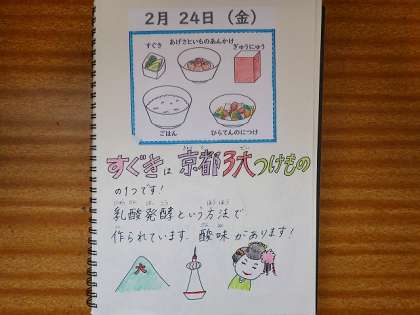 2月 24日（金）
すぐき
あげさといものあんかけ
ぎゅうにゅう
ごはん
ひらてんのにつけ
すぐきは 京都3大つけもの
の1つです!
乳酸発酵という方法で
作られています。酸味があります!
大